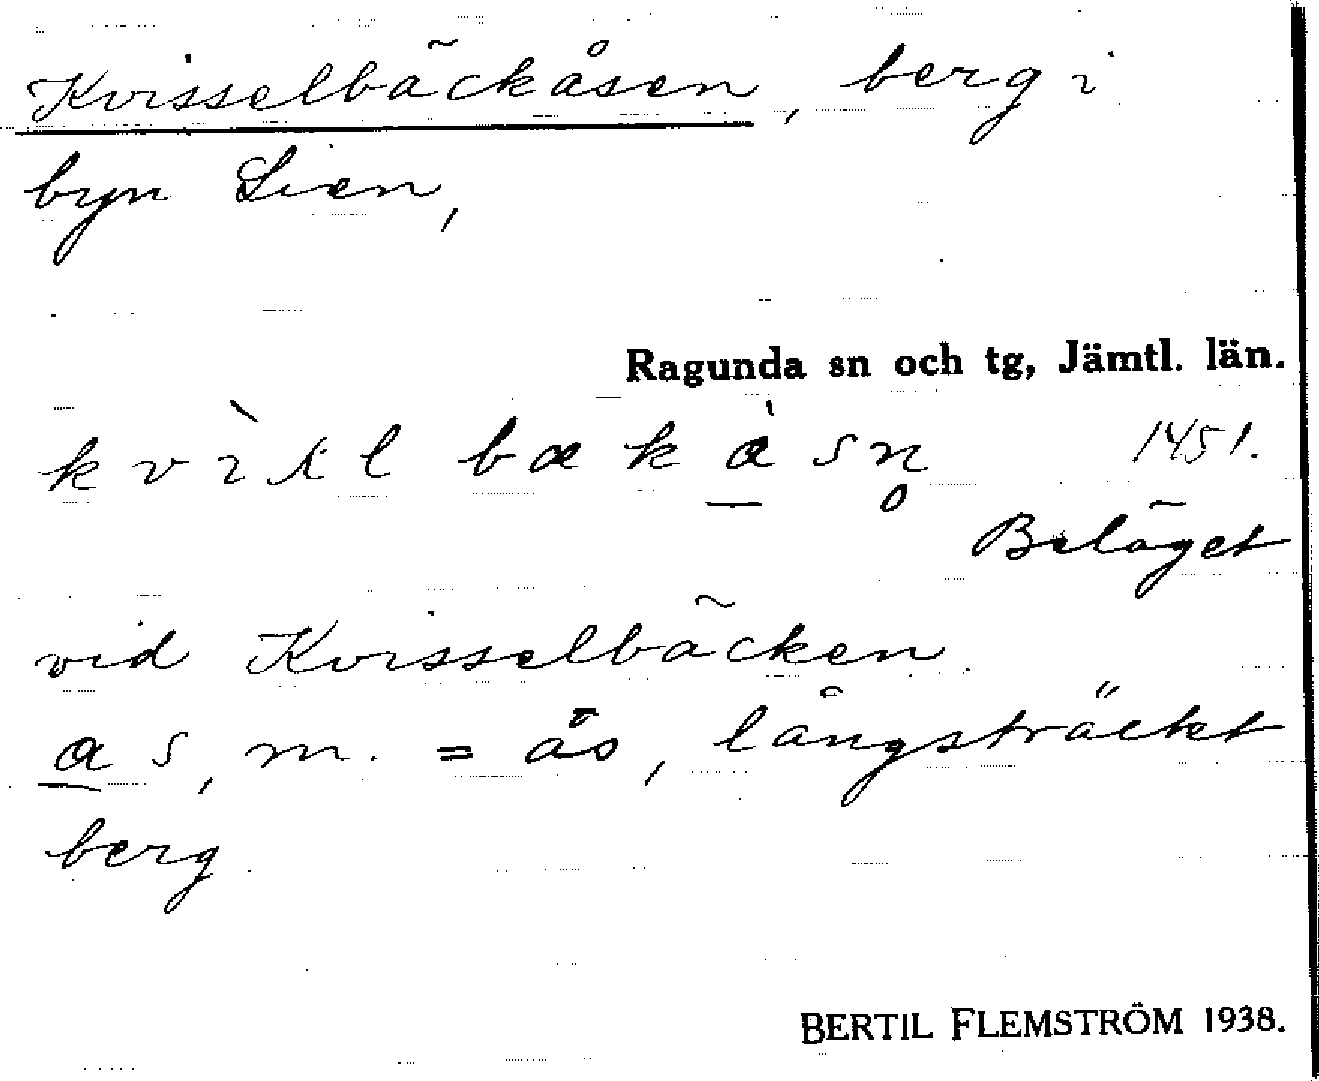 Kvisselbäckåsen, berg i
byn Lien,
Ragunda sn och tg, Jämtl. län.
1451.
Beläget
vid Kvisselbäcken.
as, m. = ås, långsträckt
berg.
BERTIL FLEMSTRÖM 1938.